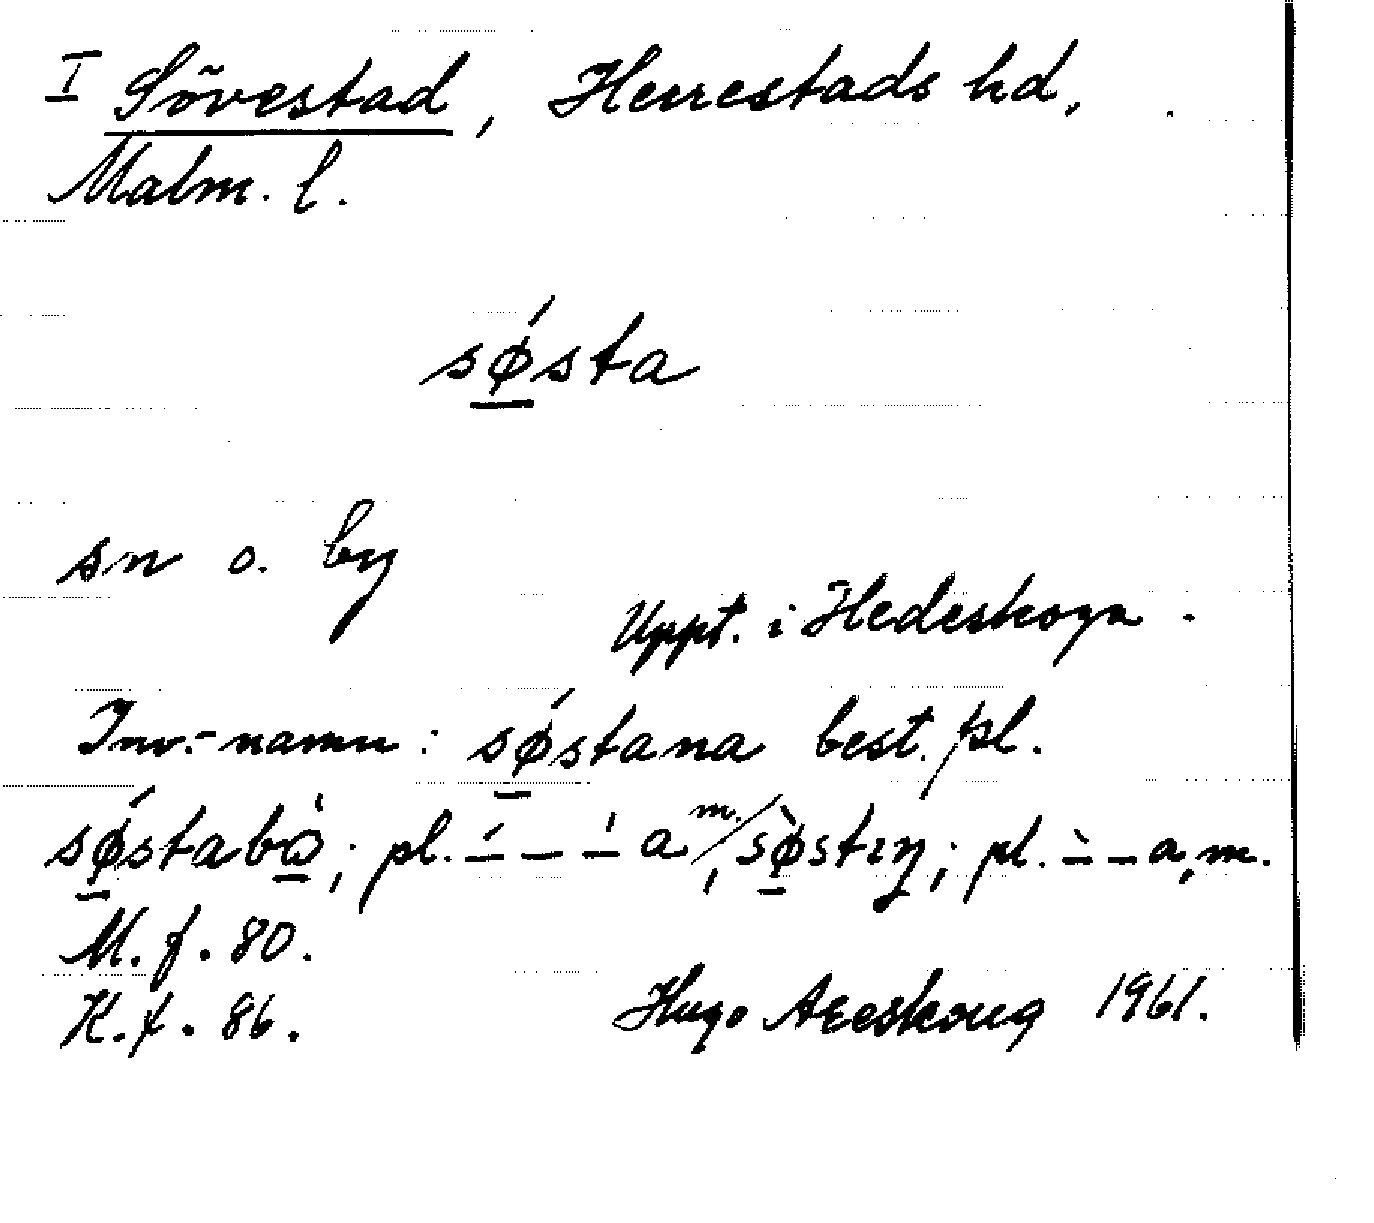 I Sövestad, Herrestads hd,
Malm. l.
sǿsta
sn o. by
Uppt. i Hedeskoga.
Inv.-namn: sǿstana best. pl.
sǿstabo; pl. – – – a, m. / søstıŋ; pl. – – a, m.
M. f. 80.
K. f. 86.
Hugo Areskoug 1961.